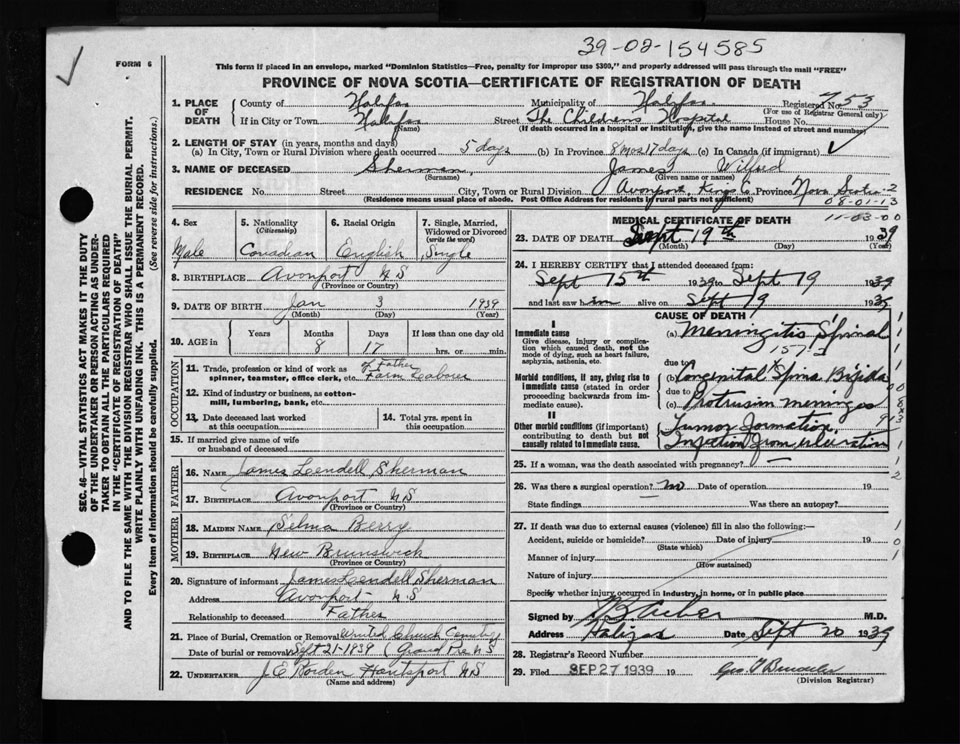 39-02-154585
FORM 6
This form if placed in an envelope, marked "Dominion Statistics—Free, penalty for improper use $300," and properly addressed will pass through the mail "FREE"
PROVINCE OF NOVA SCOTIA—CERTIFICATE OF REGISTRATION OF DEATH
SEC. 46—VITAL STATISTICS ACT MAKES IT THE DUTY
OF THE UNDERTAKER OR PERSON ACTING AS UNDER-
TAKER TO OBTAIN ALL THE PARTICULARS REQUIRED
IN THE "CERTIFICATE OF REGISTRATION OF DEATH"
AND TO FILE THE SAME WITH THE DIVISION REGISTRAR WHO SHALL ISSUE THE BURIAL PERMIT.
WRITE PLAINLY WITH UNFADING INK. THIS IS A PERMANENT RECORD.
Every item of information should be carefully supplied. (See reverse side for instructions.)
1. PLACE OF DEATH County of Halifax Municipality of Halifax Registered No. 753
(For use of Registrar General only)
If in City or Town Halifax Street The Childrens Hospital House No.
(Name) (If death occurred in a hospital or institution, give the name instead of street and number)
2. LENGTH OF STAY (in years, months and days)
(a) In City, Town or Rural Division where death occurred 5 days (b) In Province 8 mos 17 days (c) In Canada (if immigrant)
3. NAME OF DECEASED Sherman, James Wilfred
(Surname) (Given name or names)
RESIDENCE No. Street City, Town or Rural Division Avonport, Kings Co Province Nova Scotia-2
(Residence means usual place of abode. Post Office Address for residents in rural parts not sufficient)
08-01-13
11-03-00
4. Sex Male
5. Nationality (Citizenship) Canadian
6. Racial Origin English
7. Single, Married, Widowed or Divorced (write the word) Single
8. BIRTHPLACE Avonport NS
(Province or Country)
9. DATE OF BIRTH Jan 3 1939
(Month) (Day) (Year)
10. AGE in Years Months 8 Days 17 If less than one day old hrs. or min.
OCCUPATION
11. Trade, profession or kind of work as spinner, teamster, office clerk, etc. of Father Farm Laborer
12. Kind of industry or business, as cotton-mill, lumbering, bank, etc.
13. Date deceased last worked at this occupation
14. Total yrs. spent in this occupation
15. If married give name of wife or husband of deceased
FATHER
16. NAME James Lendell Sherman
17. BIRTHPLACE Avonport NS
(Province or Country)
MOTHER
18. MAIDEN NAME Selma Berry
19. BIRTHPLACE New Brunswick
(Province or Country)
20. Signature of informant James Lendell Sherman
Address Avonport NS
Relationship to deceased Father
21. Place of Burial, Cremation or Removal United Church Cemetry
Date of burial or removal Sept 21-1939 (Grand Pre NS
22. UNDERTAKER J.E Borden Hantsport NS
(Name and address)
MEDICAL CERTIFICATE OF DEATH
23. DATE OF DEATH Sept 19th 1939
(Month) (Day) (Year)
24. I HEREBY CERTIFY that I attended deceased from
Sept 15th 1939 to Sept 19 1939
and last saw him alive on Sept 19 1939
CAUSE OF DEATH
I
Immediate cause
Give disease, injury or complication which caused death, not the mode of dying, such as heart failure, asphyxia, asthenia, etc.
(a) Meningitis Spinal
157
due to
Morbid conditions, if any, giving rise to immediate cause (stated in order proceeding backwards from immediate cause).
(b) Congenital Spina Bifida
due to
(c) Protrusion meninges
II
Other morbid conditions (if important) contributing to death but not causally related to immediate cause.
Tumor formation
from ulceration
25. If a woman, was the death associated with pregnancy?
26. Was there a surgical operation? no Date of operation 19
State findings Was there an autopsy?
27. If death was due to external causes (violence) fill in also the following:
Accident, suicide or homicide? Date of injury 19
(State which)
Manner of injury
(How sustained)
Nature of injury
Specify whether injury occurred in industry, in home, or in public place
Signed by M.D.
Address Halifax Date Sept 20 1939
28. Registrar's Record Number
29. Filed SEP 27 1939
(Division Registrar)